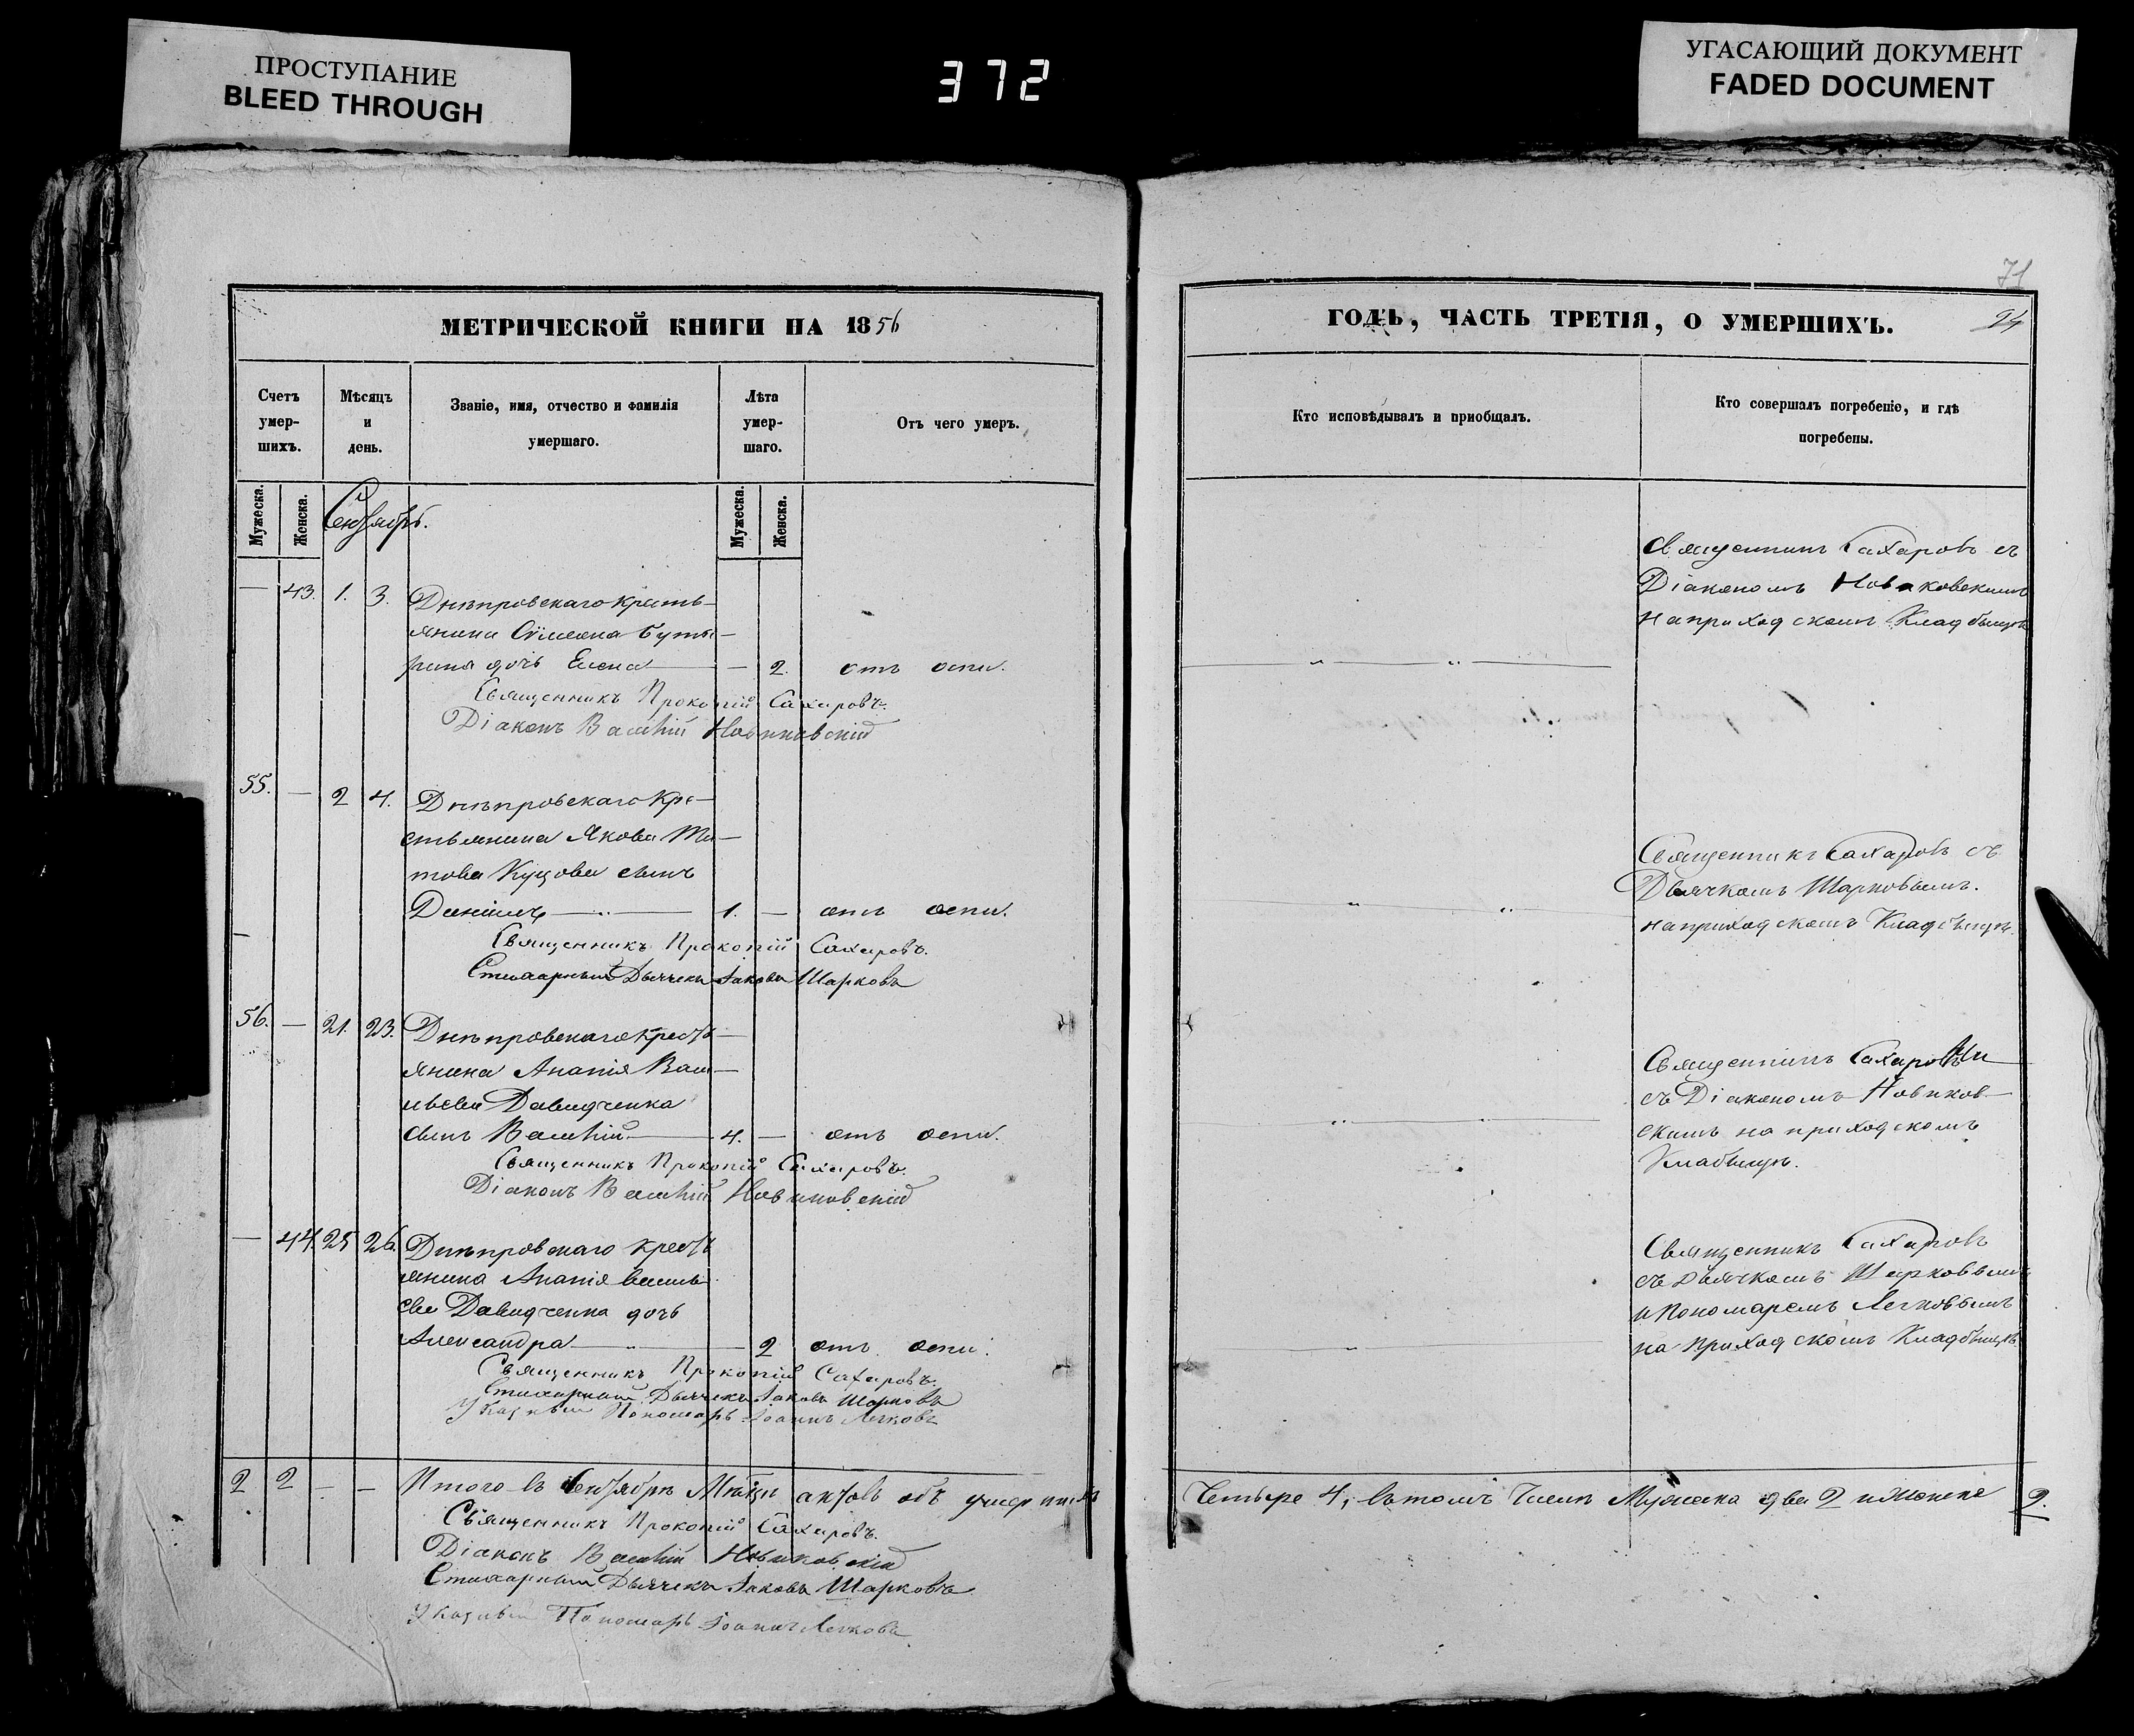 ПРОСТУПАНИЕ
BLEED THROUGH
372
УГАСАЮЩИЙ ДОКУМЕНТ
FADED DOCUMENT
71
МЕТРИЧЕСКОЙ КНИГИ НА 1856
Счетъ
умер-
шихъ.
Мѣсяцъ
и
день.
Званіе, имя, отчество и фамилія
умершаго.
Лѣта
умер-
шаго.
Отъ чего умеръ.
Мужеска.
Женска.
Сентябрь.
Мужеска.
Женска.
— 43. 1. 3. Днѣпровскаго кресть-
янина Сѵмеона Буты-
рина дочь Елена — 2. отъ оспи.
Священникъ Прокопій Сахаровъ.
Діаконъ Василій Новиковскій
55. — 2 4. Днѣпровскаго Кре-
стьянина Якова Ти-
това Куцова сынъ
Даніилъ 1. — отъ оспи.
Священникъ Прокопій Сахаровъ.
Стихарный Дьячекъ Іаковъ Шарковъ
56. — 21. 23. Днѣпровскаго крест-
янина Ананія Васи-
льева Давидченка
сынъ Василій 4. — отъ оспи.
Священникъ Прокопій Сахаровъ.
Діаконъ Василій Новиковскій
— 44. 25 26. Днѣпровскаго крест
янина Ананія Василь
ева Давидченка дочь
Александра 2 отъ оспи.
Священникъ Прокопій Сахаровъ.
Стихарный Дьячекъ Іаковъ Шарковъ
Указный Пономарь Іоаннъ Легковъ
2 2 — — Итого въ Сентябрѣ Мѣсяцѣ актовъ объ умершихъ
Священникъ Прокопій Сахаровъ.
Діаконъ Василій Новиковскій
Стихарный Дьячекъ Іаковъ Шарковъ
Указный Пономарь Іоаннъ Легковъ
ГОДЪ, ЧАСТЬ ТРЕТІЯ, О УМЕРШИХЪ.
Кто исповѣдывалъ и приобщалъ.
Кто совершалъ погребеніе, и гдѣ
погребены.
Священникъ Сахаровъ съ
Діакономъ Новаковскимъ
на приходскомъ Кладбищѣ
Священникъ Сахаровъ съ
Дьячкомъ Шарковымъ.
на приходскомъ Кладбищѣ.
Священникъ Сахаровъ
съ Діакономъ Новиков-
скимъ на приходскомъ
Кладбищѣ.
Священникъ Сахаровъ
съ Дьячкомъ Шарковымъ
и Пономаремъ Легковымъ
на Приходскомъ Кладбищѣ
Четыре 4, въ томъ числѣ Мужеска два 2 и женска 2.